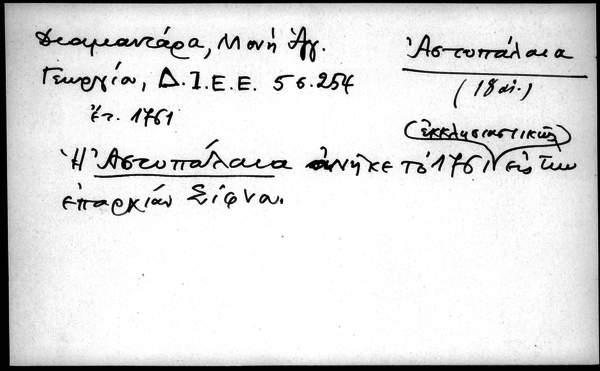 Διαμαντάρα, Μονὴ Ἁγ.
Γεωργίου, Δ.Ι.Ε.Ε. 5 σ. 254
ἔτ. 1751
Ἀστυπάλαια
(18 αἰ.)
(ἐκκλησιαστικῶς)
Ἡ Ἀστυπάλαια ἀνῆκε τὸ 1751 εἰς τὴν
ἐπαρχίαν Σίφνου.